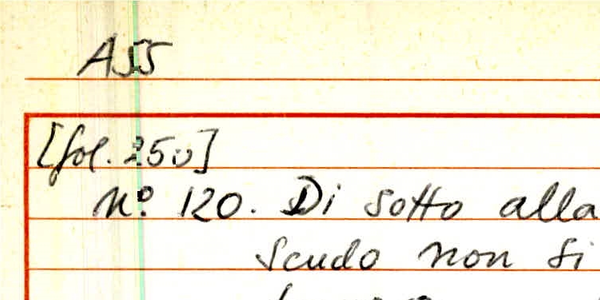 ASS
[fol. 25v]
nº. 120. Di sotto alla
scudo non si